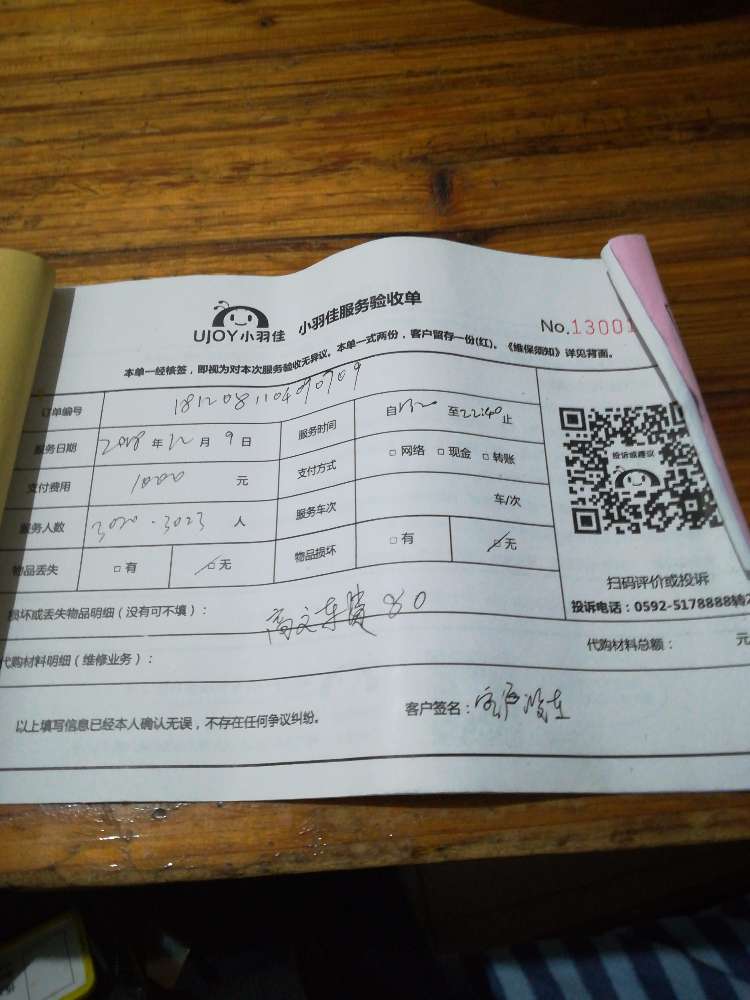 UJOY小羽佳 小羽佳服务验收单
No.13001
本单一经核签，即视为对本次服务验收无异议。本单一式两份，客户留存一份(红)。《维保须知》详见背面。
订单编号 181208110490909
服务日期 2018 年 12 月 9 日 服务时间 自 至 22:40 止
支付费用 1000 元 支付方式 □ 网络 □ 现金 □ 转账
服务人数 3020 - 3023 人 服务车次 车/次
物品丢失 □ 有 □ 无 物品损坏 □ 有 □ 无
投诉或建议
扫码评价或投诉
投诉电话：0592-5178888转2
损坏或丢失物品明细（没有可不填）： 80
代购材料明细（维修业务）： 代购材料总额： 元
以上填写信息已经本人确认无误，不存在任何争议纠纷。 客户签名：